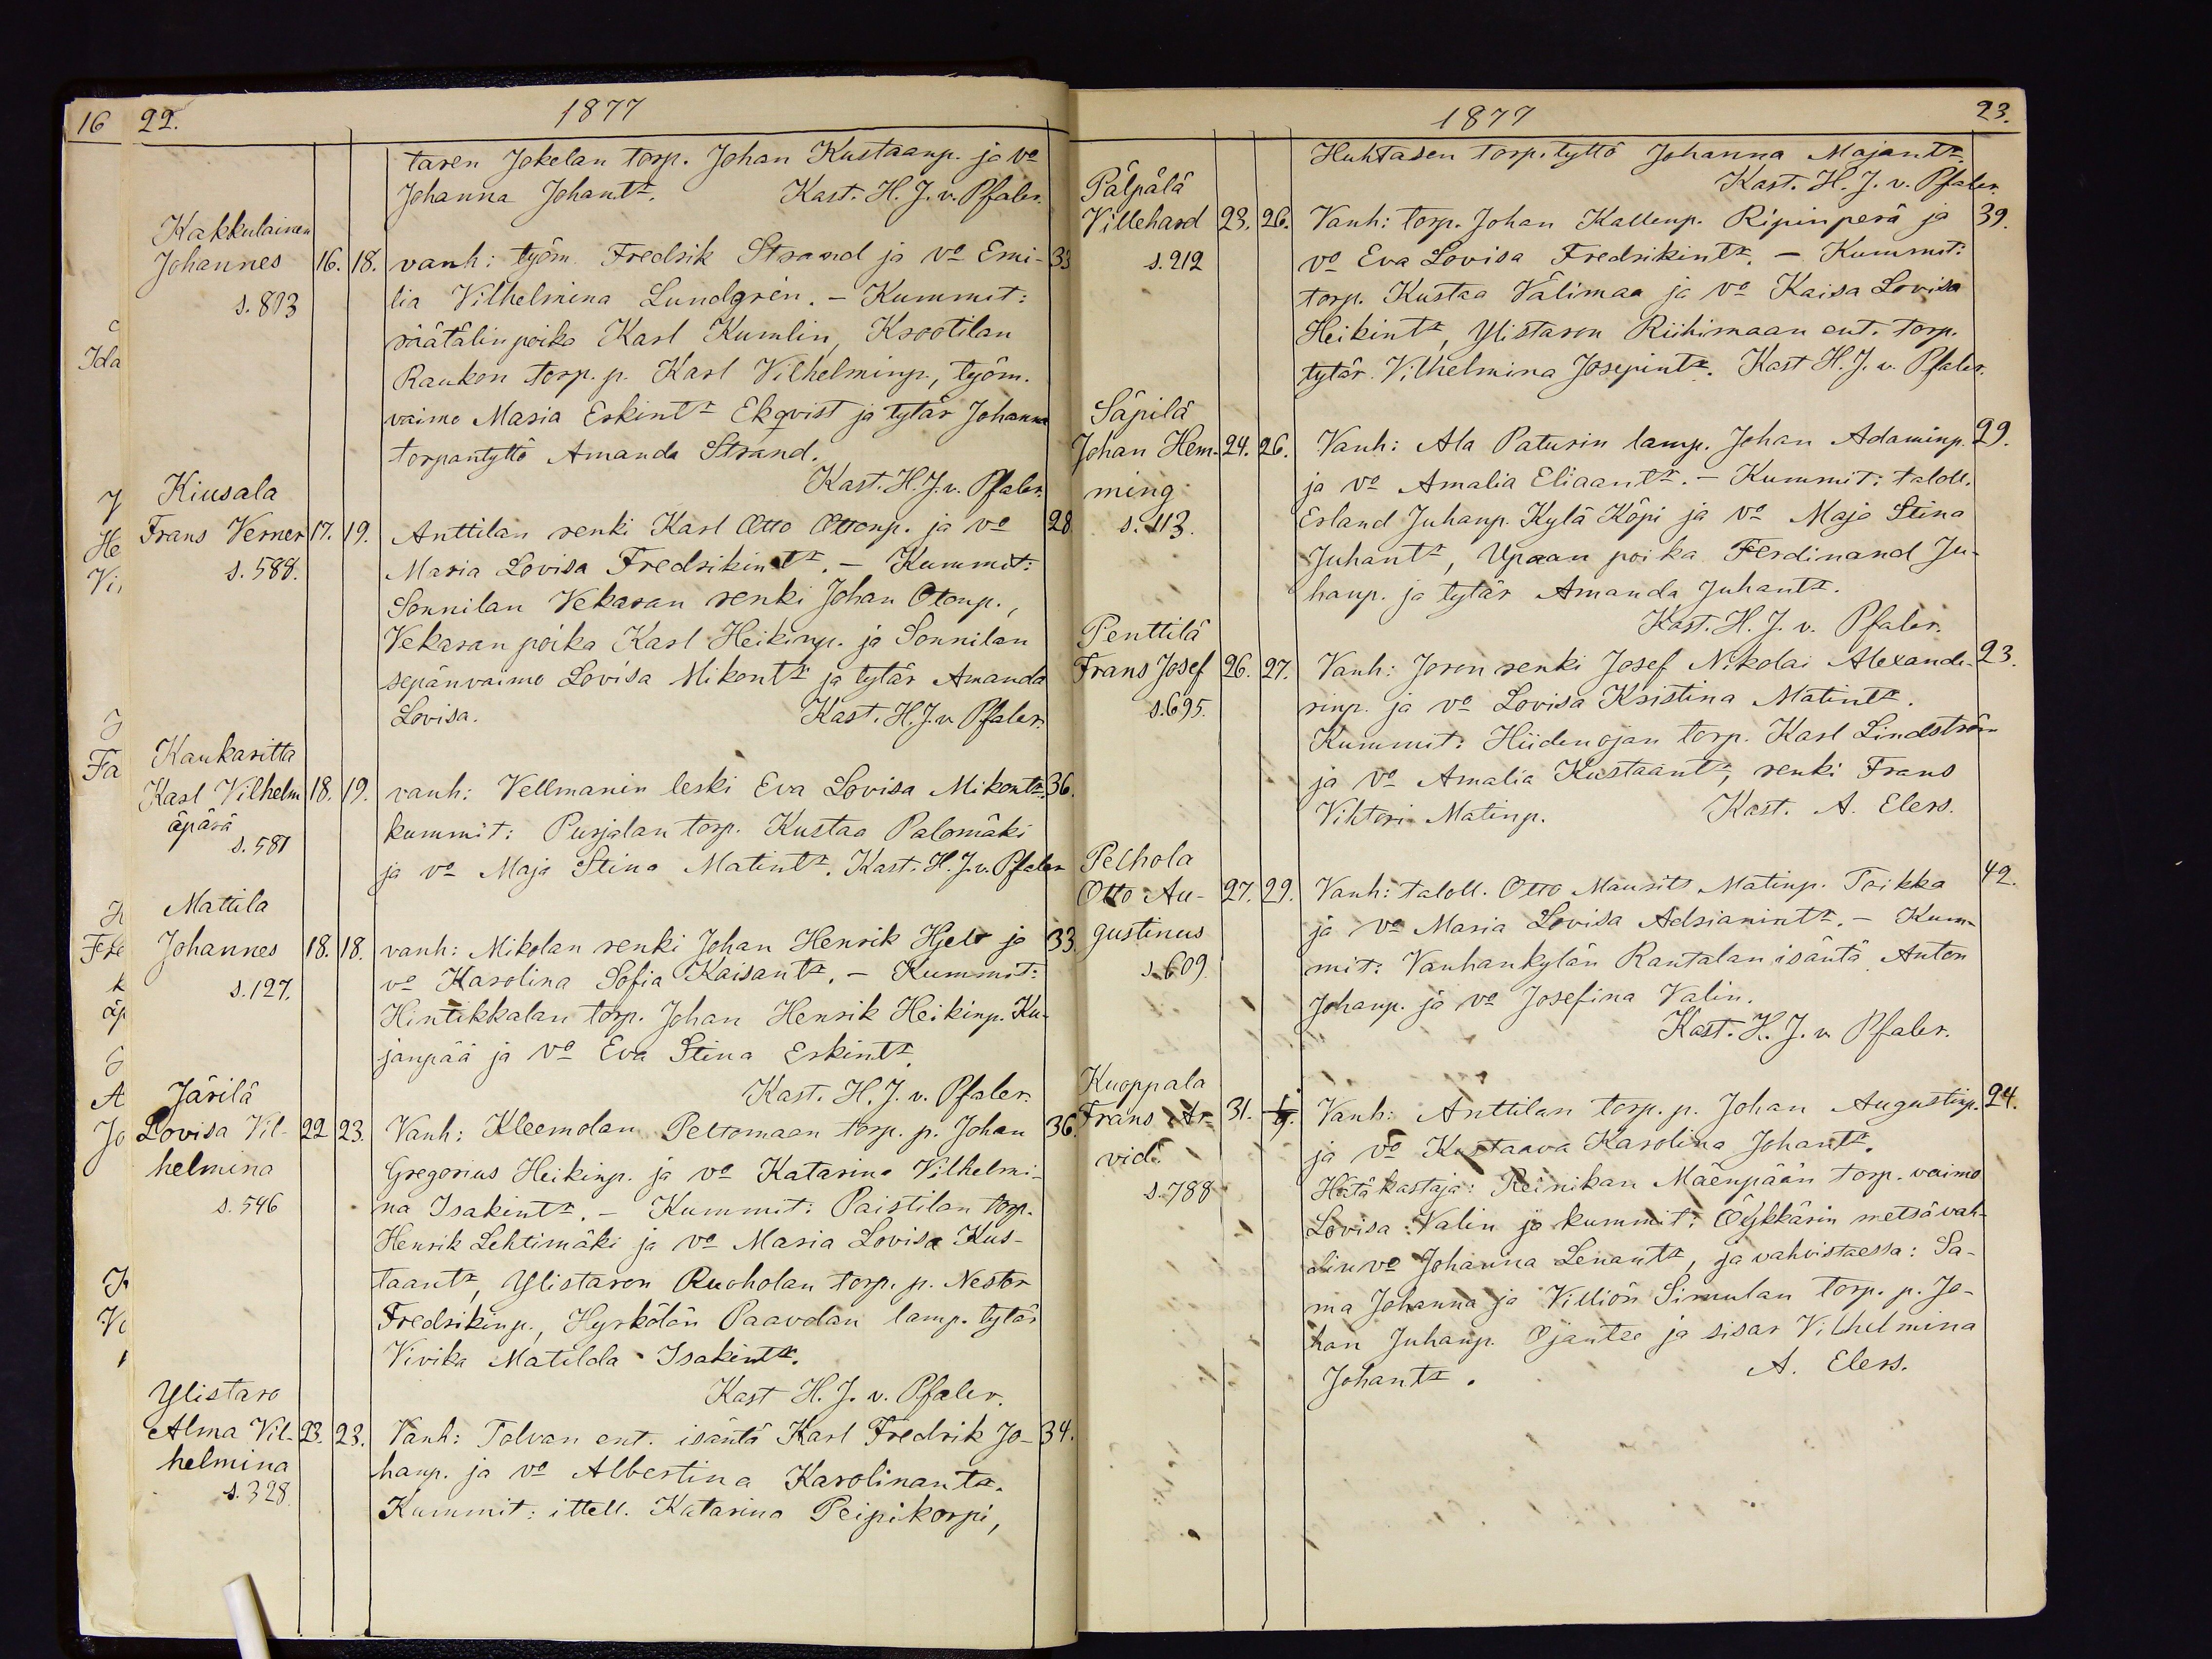 16 22. 1877
taren Jokelan torp. Johan Kustaanp. ja vo
Johanna Johantr. Kast. H. J. v. Pfaler.
Kakkulainen
Johannes 16. 18. vanh: työm. Fredrik Strand ja vo Emi- 33
s. 893 lia Vilhelmina Lundgrén. – Kummit:
räätälinpoika Karl Kumlin, Krootilan
Raukon torp. p. Karl Vilhelminp., työm.
vaimo Maria Erkintr Ekqvist ja tytär Johanna
torpantyttö Amanda Strand.
Kast. H. J. v. Pfaler.
Kiusala
Frans Verner 17. 19. Anttilan renki Karl Otto Ottonp. ja vo 28
s. 588. Maria Lovisa Fredrikintr. – Kummit:
Sonnilan Vekaran renki Johan Otonp.,
Vekaran poika Karl Heikinp. ja Sonnilan
sepänvaimo Lovisa Mikontr ja tytär Amanda
Lovisa. Kast. H. J. v. Pfaler.
Kaukaritta
Karl Vilhelm 18. 19. vanh: Vellmanin leski Eva Lovisa Mikontr. 36.
äpärä
s. 581 kummit: Purjalan torp. Kustaa Palomäki
ja vo Maja Stina Matintr. Kast. H. J. v. Pfaler
Mattila
Johannes 18. 18. vanh: Mikolan renki Johan Henrik Hjelt ja 33.
s. 127. vo Karolina Sofia Kaisantr. – Kummit:
Hintikkalan torp. Johan Henrik Heikinp. Ku-
janpää ja vo Eva Stina Erkintr.
Kast. H. J. v. Pfaler.
Järilä
Lovisa Vil- 22 23. Vanh: Kleemolan Peltomaan torp. p. Johan 36.
helmina Gregorius Heikinp. ja vo Katarina Vilhelmi-
s. 546 na Isakintr. – Kummit: Paistilan torp.
Henrik Lehtimäki ja vo Maria Lovisa Kus-
taantr, Ylistaron Ruoholan torp. p. Nestor
Fredrikinp., Hyrkölän Paavolan lamp. tytär
Vivika Matilda Isakintr.
Kast H. J. v. Pfaler.
Ylistaro
Alma Vil- 23. 23. Vanh: Tolvan ent. isäntä Karl Fredrik Jo- 34.
helmina hanp. ja vo Albertina Karolinantr.
s. 328. Kummit: ittell. Katarina Peipikorpi,
1877 23.
Huhtasen torp. tyttö Johanna Majantr.
Kast. H. J. v. Pfaler.
Pälpälä
Villehard 23. 26. Vanh: torp. Johan Kallenp. Ripinperä ja 39.
s. 212 vo Eva Lovisa Fredrikintr. – Kummit:
torp. Kustaa Välimaa ja vo Kaisa Lovisa
Heikintr, Ylistaron Riihimaan ent. torp.
tytär Vilhelmina Josepintr. Kast H. J. v. Pfaler.
Säpilä
Johan Hem- 24. 26. Vanh: Ala Paturin lamp. Johan Adaminp. 29.
ming ja vo Amalia Eliaantr. – Kummit: taloll.
s. 113. Erland Juhanp. Kylä Köpi ja vo Maja Stina
Juhantr, Upaan poika Ferdinand Ju-
hanp. ja tytär Amanda Juhantr.
Kast. H. J. v. Pfaler.
Penttilä
Frans Josef 26. 27. Vanh: Joron renki Josef Nikolai Alexande- 23.
s. 695. rinp. ja vo Lovisa Kristina Matintr.
Kummit: Hiidenojan torp. Karl Lindström
ja vo Amalia Kustaantr, renki Frans
Vihtori Matinp. Kast. A. Elers.
Pelhola
Otto Au- 27. 29. Vanh: taloll. Otto Maurits Matinp. Toikka 42.
gustinus ja vo Maria Lovisa Adrianintr. – Kum-
s. 609. mit: Vanhankylän Rantalan isäntä Anton
Johanp. ja vo Josefina Valin.
Kast. H. J. v. Pfaler.
Kuoppala
Frans Ar- 31. Vanh: Anttilan torp. p. Johan Augustinp. 24.
vid. ja vo Kustaava Karolina Johantr.
s. 788 Hätäkastaja: Reinikan Mäenpään torp. vaimo
Lovisa Valin ja kummit: Öykkärin metsävah-
din vo Johanna Lenantr, ja vahvistaessa: Sa-
ma Johanna ja Villiön Simulan torp. p. Jo-
han Juhanp. Ojantee ja sisar Vilhelmina
Johantr. A. Elers.